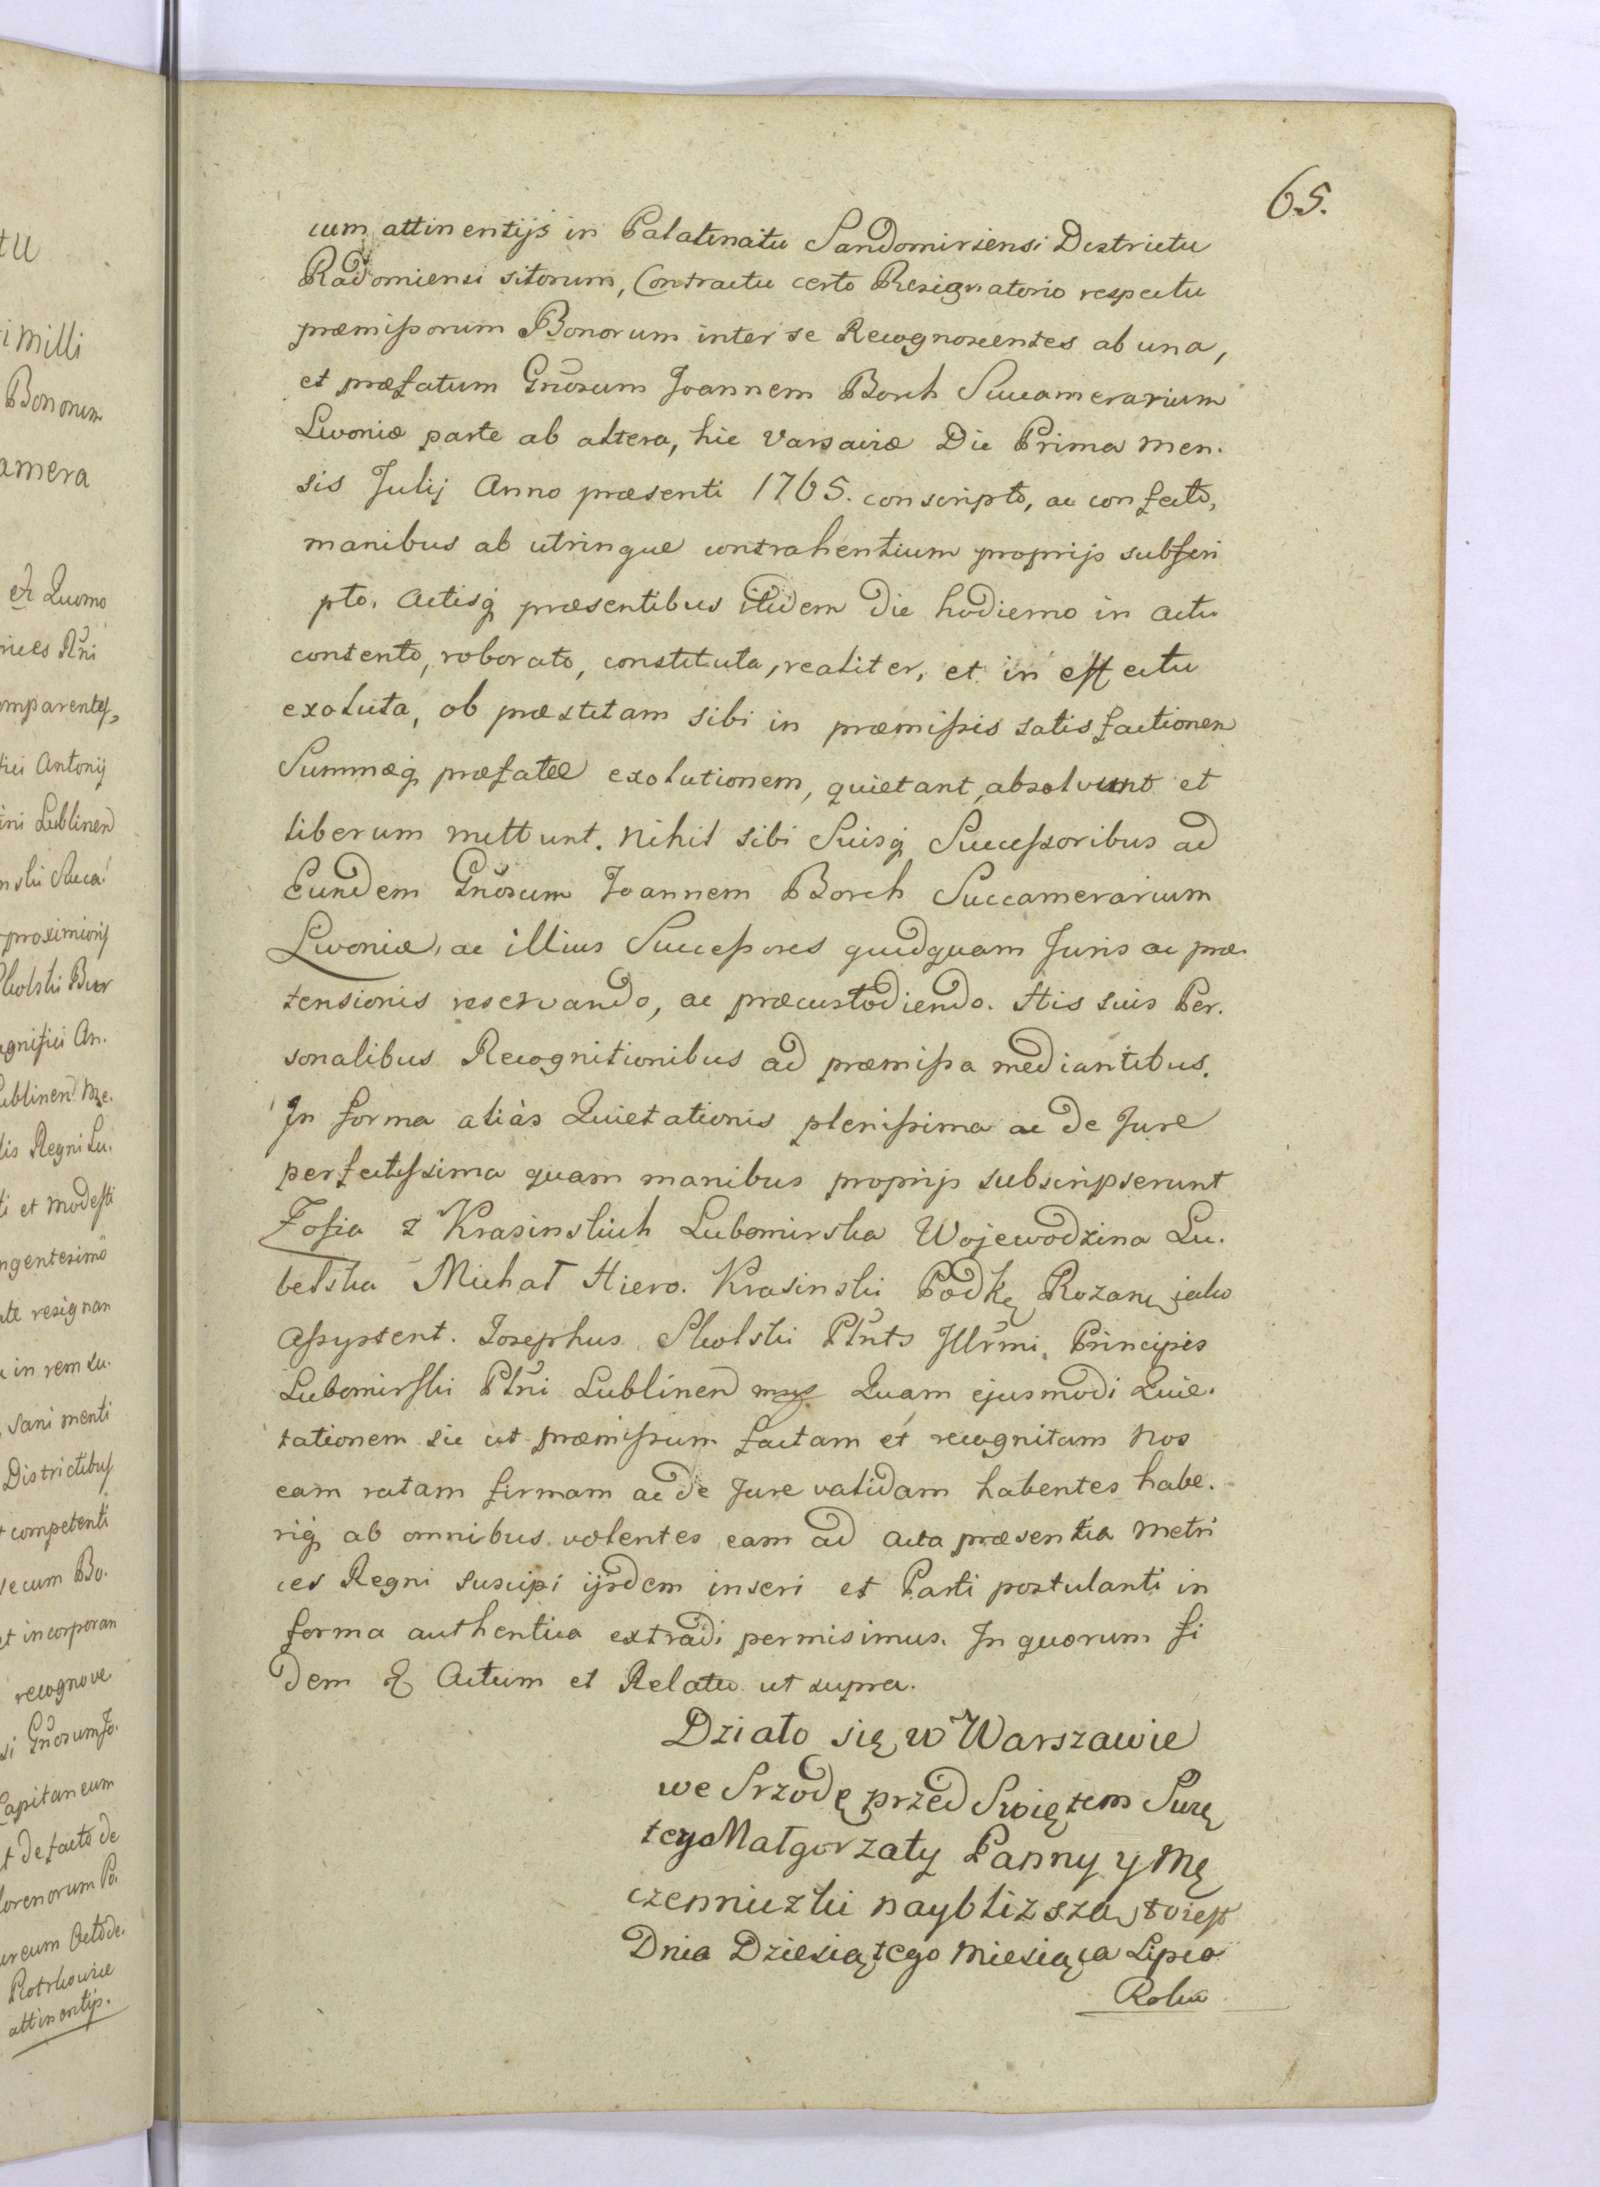 tu
i milli
Bonorum
amera
et Quomo
rices Rni
omparentes,
fici Antonij
ini Lublinen
nski Succa.
proximioris
Skolski Bur
agnifici An.
ublinen. Me.
lis Regni Lu.
ti et modesti
ngentesimo
nte resignan
a in rem su.
, sani menti
Districtibus
t competenti
secum Bo.
et incorporan
recognove
si Gnosum Jo.
Capitaneum
t de facto de
florenorum Po.
ureum Octode.
Rotrkowice
attinentijs.
65.
cum attinentijs in Palatinatu Sandomiriensi Districtu
Radomiensi sitorum, Contractu certo Resignatorio respectu
præmissorum Bonorum inter se Recognoscentes ab una,
et præfatum Gnosum Joannem Borch Succamerarium
Livoniæ parte ab altera, hic Varsaviæ Die Prima Men.
sis Julij Anno præsenti 1765. conscripto, ac confecto,
manibus ab utrinque contrahentium proprijs subscri
pto. Actisq præsentibus itidem die hodierno in actu
contento, roborato, constituta, realiter, et in effectu
exoluta, ob præstitam sibi in præmissis satisfactionem
Summæq præfatæ exolutionem, quietant, absolvunt et
liberum mittunt. Nihil sibi Suisq Successoribus ad
Eundem Gnosum Joannem Borch Succamerarium
Livoniæ, ac illius Successores quidquam Juris ac præ.
tensionis reservando, ac præcustodiendo. His suis Per.
sonalibus Recognitionibus ad præmissa mediantibus.
In forma aliàs Quietationis plenissima ac de Jure
perfectissima quam manibus proprijs subscripserunt
Zofia z Krasinskich Lubomirska Wojewodzina Lu.
belska Michał Hiero. Krasinski Podkę Rozanę jako
Assystent. Josephus Skolski Plnts Jllrmi. Principis
Lubomirski Plni Lublinen mys Quam ejusmodi Quie.
tationem sic ut præmissum factam et recognitam Nos
eam ratam firmam ac de Jure validam habentes habe.
riq ab omnibus volentes eam ad acta præsentia Metri
ces Regni suscipi ijsdem inseri et Parti postulanti in
forma authentica extradi permisimus. In quorum fi
dem & Actum et Relatio ut supra.
Działo się w Warszawie
we Srzodę przed Swiętem Swię
tego Małgorzaty Panny y Mę
czenniczki naybliższą to iest
Dnia Dziesiątego Miesiąca Lipca
Roku